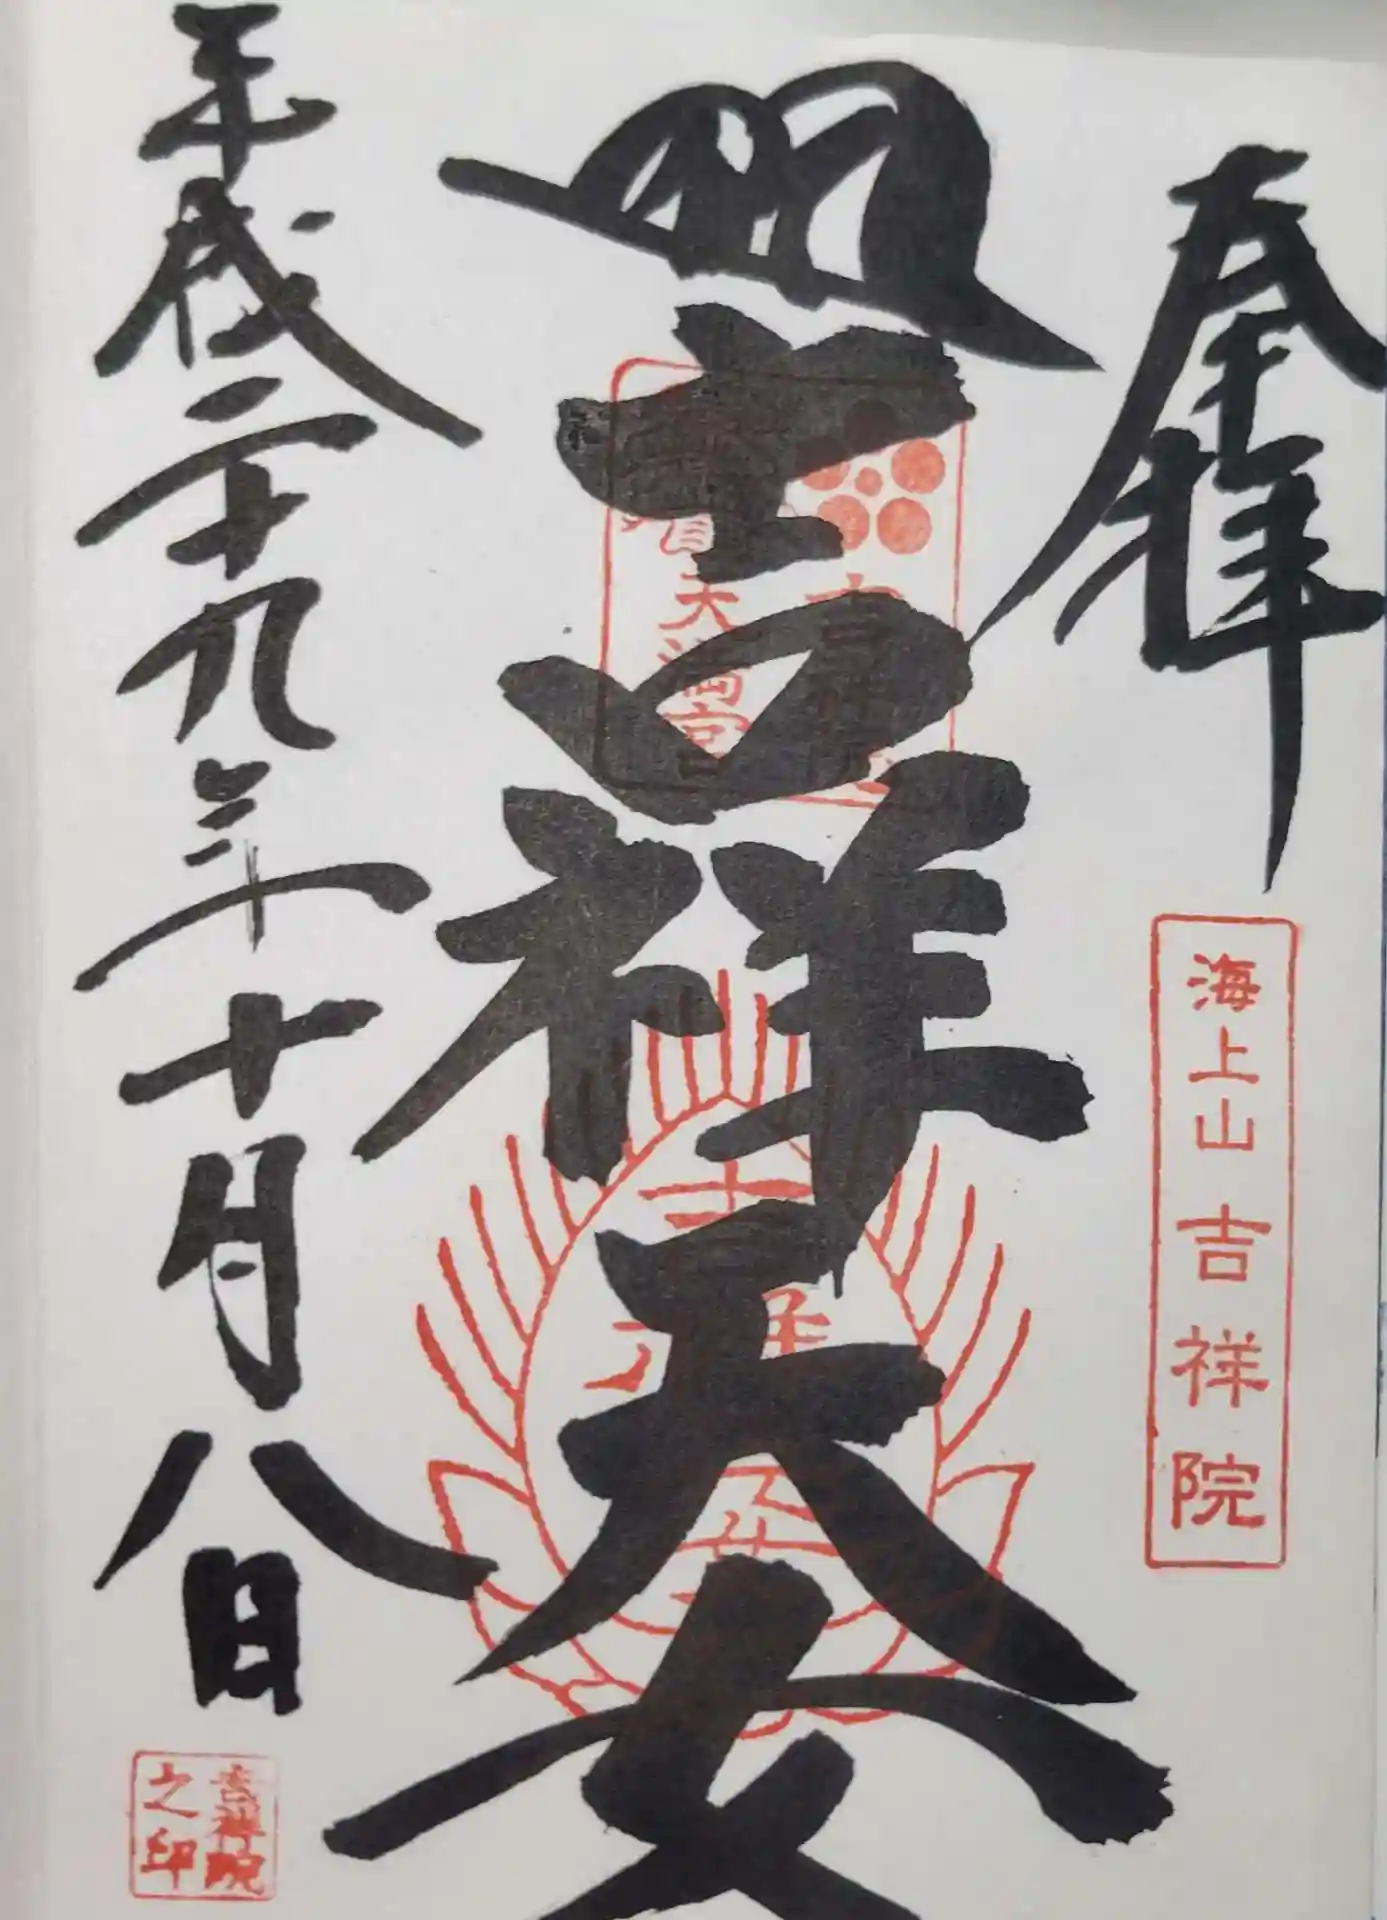 奉拝
海上山 吉祥院
吉祥天女
吉祥院
天満宮
平成二十九年十月八日
吉祥院
之印